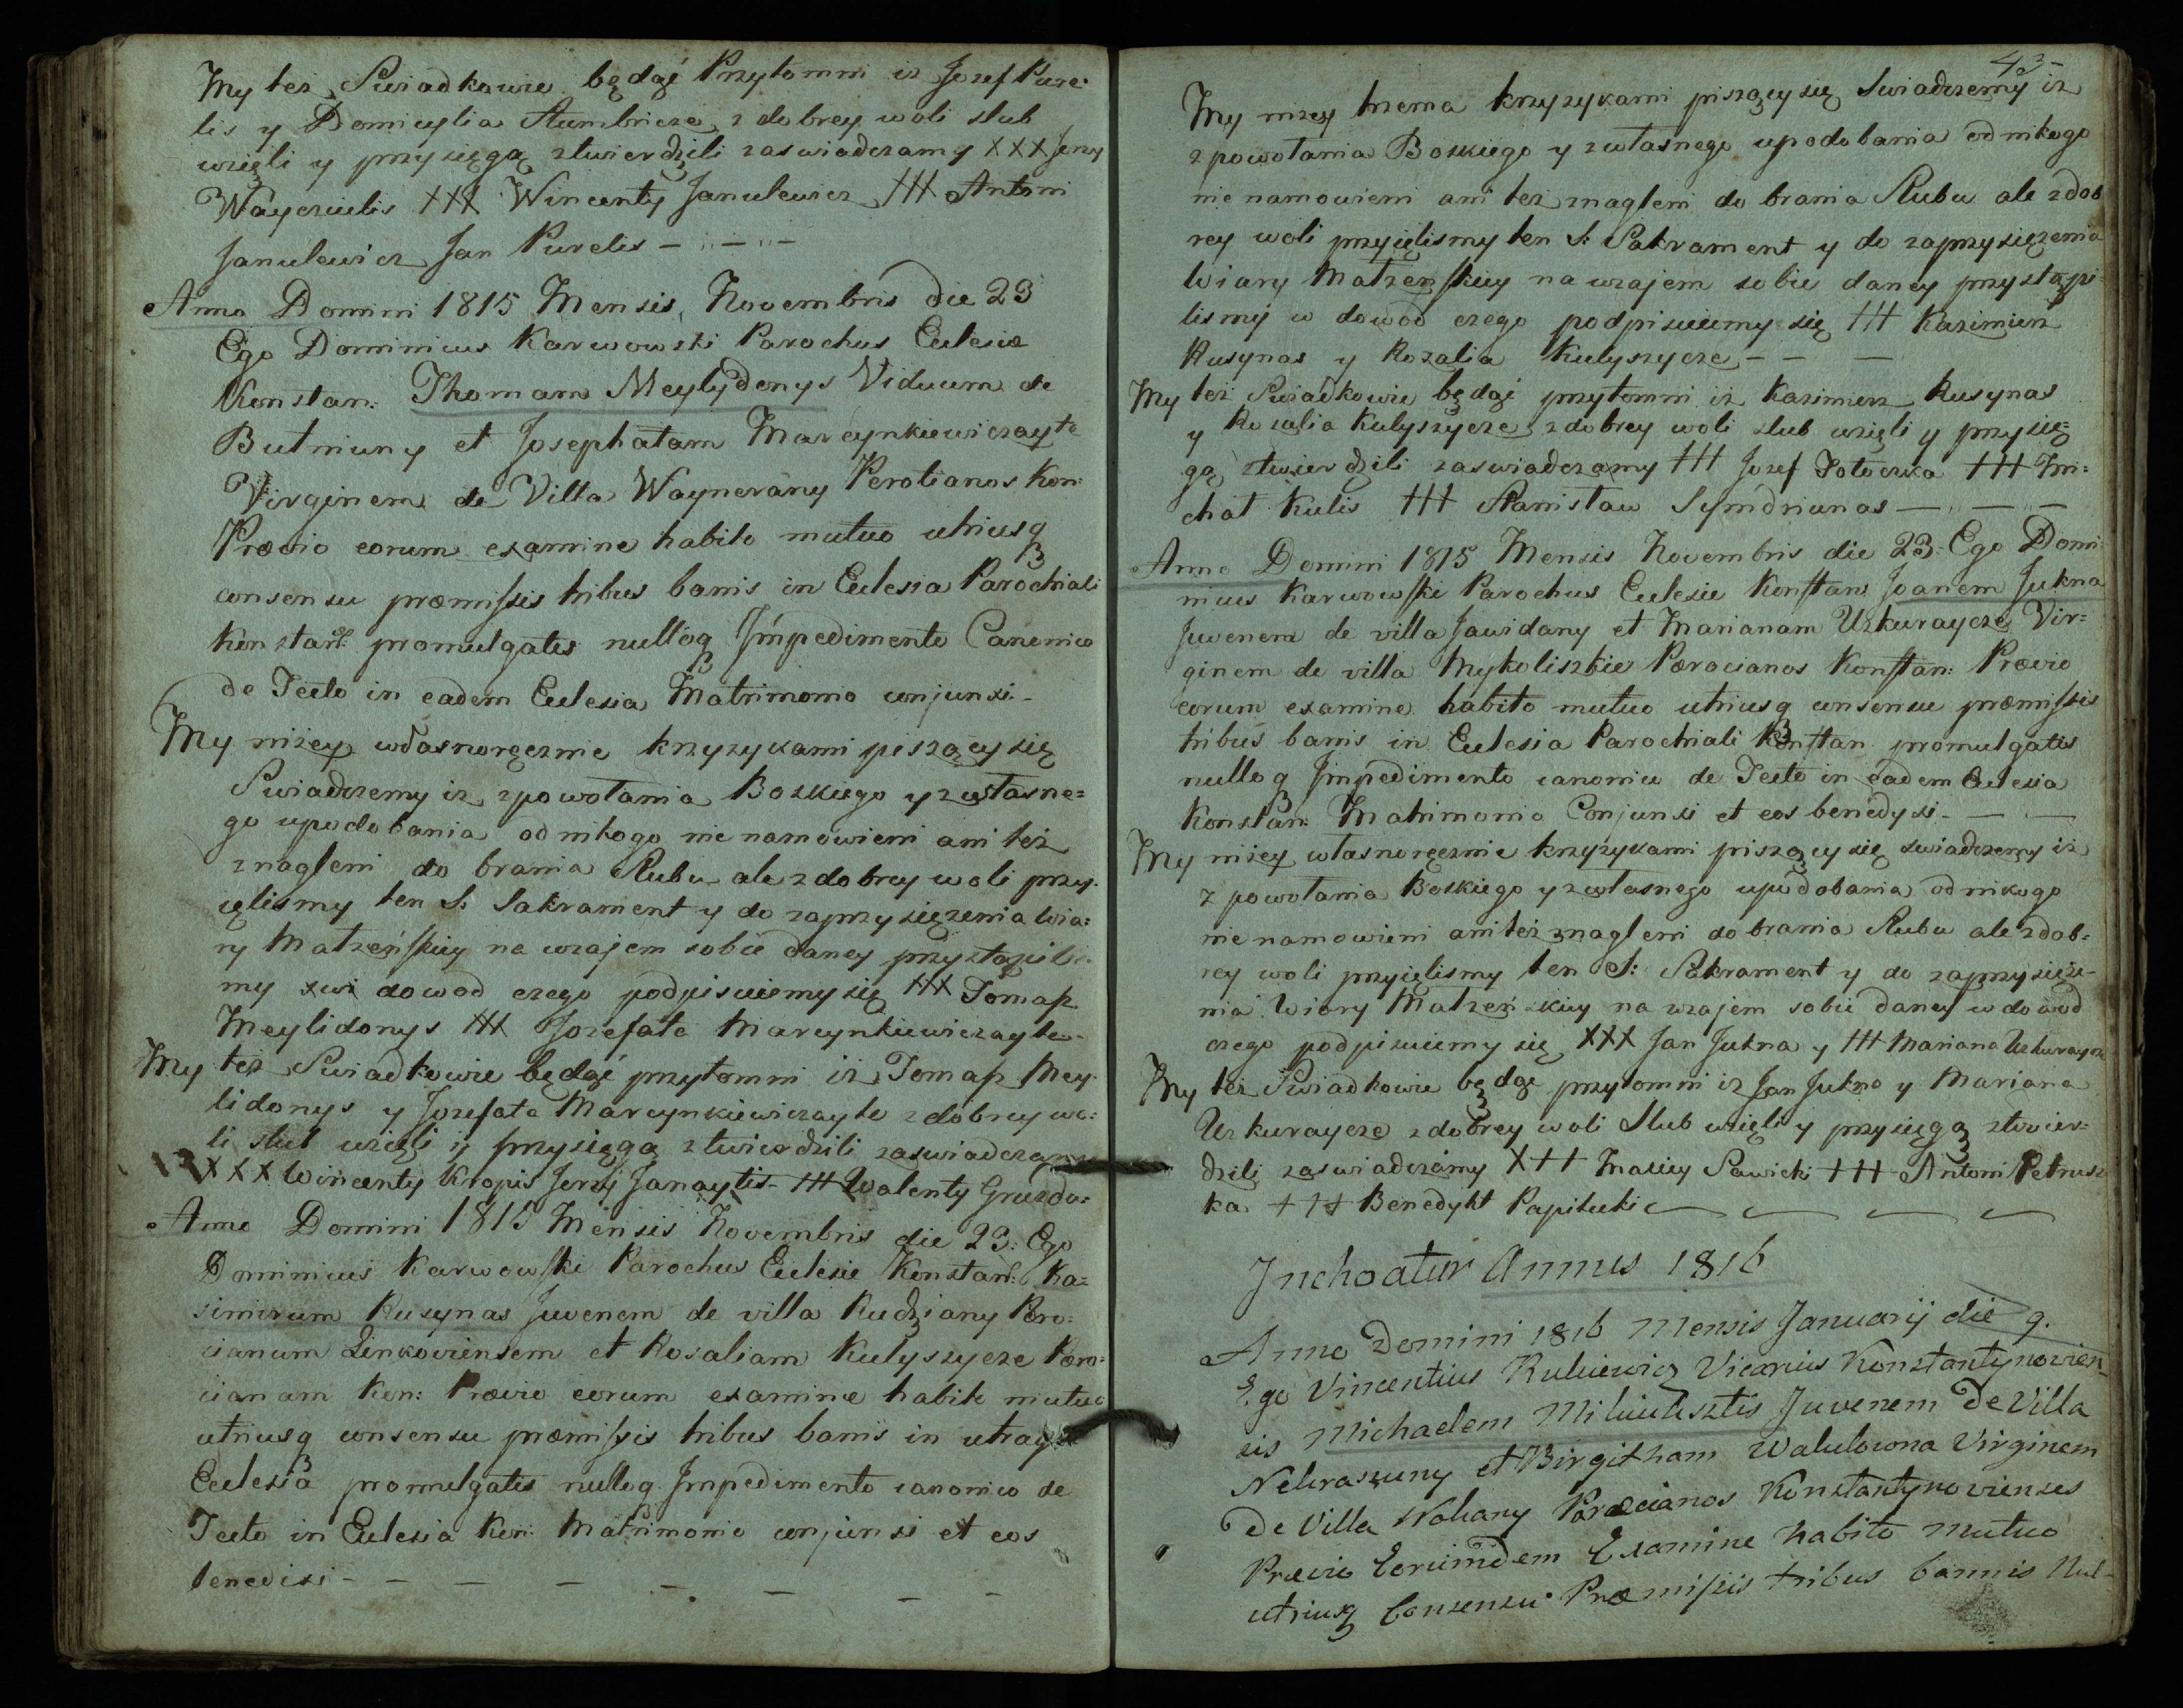 My też Swiadkowie będąć Przytomni iz Jozef Pure-
lis y Domicylia Aumbricze z dobrey woli slub
wzięli y przysięgą ztwierdzili zaswiadczamy XXX Jerzy
Wayczulis +++ Wincenty Janulewicz +++ Antoni
Janulewicz Jan Purelis — „ — „ —
Anno Domini 1815 Mensis Novembris die 23
Ego Dominicus Karwowski Parochus Eclesiæ
Konstan: Thomam Meylydonys Viduum de
Butniuny et Josephatam Marcynkiewiczayte
Virginem de Villa Waynerany Perotianos Kon:
Prævio eorum examine habito mutuo utriusq
consensu præmissis tribus banis in Eclesia Parochiali
Konstan: promulgatis nulloq Impedimento Canonico
de Tecto in eadem Eclesia Matrimonio conjunxi -
My niżey własnoręcznie krzyzykami piszący się
Swiadczemy iz z powołania Boskiego y z własne=
go upodobania od nikogo nie namowieni ani też
znagleni do brania Slubu ale z dobrey woli przy-
ięlismy ten S: Sakrament y do zaprzysięzenia Wia:
ry Małzeńskiey na wzajem sobie daney przystąpili
my w dowod czego podpisuiemy się +++ Tomasz
Meylidonys +++ Jozefata Marcynkiewiczayte -
My też Swiadkowie będąć przytomni iz Tomasz Mey-
lidonys y Jozefata Marcynkiewiczayte z dobrey wo:
li slub wzięli y przysięgą ztwierdzili zaswiadczamy
XXX Wincenty Kropis Jerzy Janaytis - +++ Walenty Gruzda:
Anno Domini 1815 Mensis Novembris die 23: Ego
Dominicus Karwowski Parochus Eclesie Konstan: Ka=
simirum Kusynas Juvenem de villa Kudziany Paro:
cianum Linkoviensem et Rosaliam Kulyszycze Paro=
cianam Kon: Prævio eorum examine habito mutuo
utriusq consensu præmissis tribus banis in utraq
Eclesia promulgatis nulloq Impedimento canonico de
Tecto in Eclesia Kon: Matrimonio conjunxi et eos
benedixi - — — — — — —
43
My nizey trzema krzyzykami piszący się Swiadczemy iz
z powołania Boskiego y z własnego upodobania od nikogo
nie namowieni ani też znagleni do brania Slubu ale z dob
rey woli przyięlismy ten S: Sakrament y do zaprzysięzenia
Wiary Małzenskiey na wzajem sobie daney przystąpi-
lismy w dowod czego podpisuiemy się +++ Kazimierz
Kusynas y Rozalia Kulyszycze — — —
My też Swiadkowie będąć przytomni iz Kazimierz Kusynas
y Rozalia Kulyszycze z dobrey woli slub wzięli y przysię=
gą ztwierdzili zaswiadczamy +++ Jozef Potoczka +++ Mi:
chał Kulis +++ Stanisław Symdriunas — „ — — —
Anno Domini 1815 Mensis Novembris die 23: Ego Domi-
nicus Karwowski Parochus Eclesie Konstan: Joanem Jukna
Juvenem de villa Jawidany et Marianam Uzkuraycze Vir=
ginem de villa Mykoliszkie Parocianos Konstan: Prævio
eorum examine habito mutuo utriusq consensu præmissis
tribus banis in Eclesia Parochiali Konstan promulgatis
nulloq Impedimento canonico de Tecto in eadem Eclesia
Konstan: Matrimonio Conjunxi et eos benedyxi - — —
My niżey własnoręcznie krzyzykami piszący się swiadczemy iz
z powołania Boskiego y z własnego upodobania od nikogo
nie namowieni ani też znagleni do brania Slubu ale z dob:
rey woli przyięlismy ten S: Sakrament y do zaprzysięże-
nia Wiary Małzeńskiey na wzajem sobie daney w dowod
czego podpisuiemy się XXX Jan Jukna y +++ Mariana Uzkuraycze
My też Swiadkowie będąć przytomni iz Jan Jukna y Mariana
Uzkuraycze z dobrey woli Slub wzięli y przysięgą ztwier=
dzili zaswiadczamy X++ Maciey Sawicki +++ Antoni Petrusz
ka +++ Benedykt Papilucki
Inchoatur Annus 1816
Anno Domini 1816 Mensis Januarij die 9.
Ego Vincentius Kuliewicz Vicarius Konstantynovien-
sis Michaelem Juvenem De Villa
Nekraszuny et Birgitham Walulowna Virginem
De Villa Nohany Parœcianos Konstantynovienses
Prævio Eorumdem Examine habito Mutuo
utriusq Consensu Præmissis tribus bannis Nul-